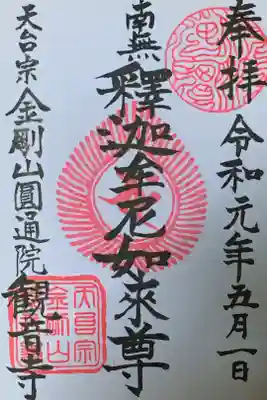 奉拝
令和元年五月一日
南無
釋迦牟尼如來尊
天台宗金剛山圓通院
観音寺